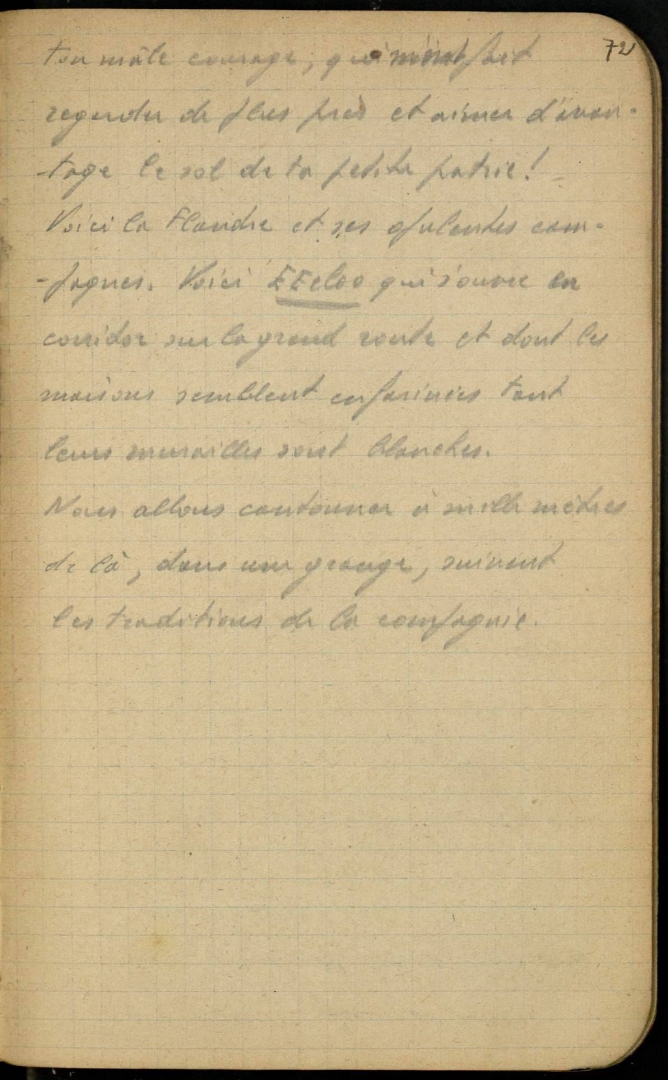 72
ton mâle courage, qui m'ont fait
regarder de plus près et aimer d'avan-
-tage le sol de ta petite patrie!
Voici la Flandre et ses opulentes cam-
-pagnes. Voici EEcloo qui s'ouvre en
corridor sur la grand route et dont les
maisons semblent enfarinées tant
leurs murailles sont blanches.
Nous allons cantonner à mille mètres
de là, dans une grange, suivant
les traditions de la compagnie.